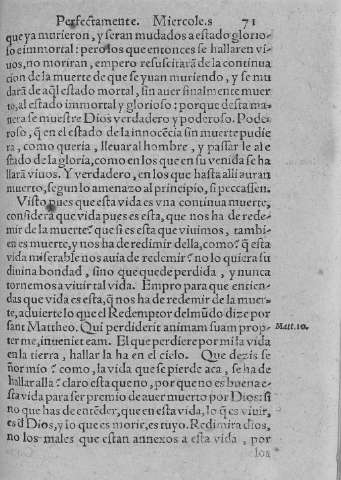 Perfectamente. Miercoles 71
que ya murieron, y seran mudados a estado glorio-
so e immortal: pero los que entonces se hallaren vi
uos, no moriran, empero resuscitarã de la continua
cion de la muerte de que se yuan muriendo, y se mu
darã de aq̃l estado mortal, sin auer finalmente muer
to, al estado immortal y glorioso: porque desta ma-
nera se muestre Dios verdadero y poderoso. Pode-
roso, q̃ en el estado de la innocẽcia sin muerte pudie
ra, como queria, lleuar al hombre, y passar le al e
stado de la gloria, como en los que en su venida se ha
llarã viuos. Y verdadero, en los que hasta alli auran
muerto, segun lo amenazo al principio, si peccassen.
Visto pues que esta vida es vna continua muerte,
considera que vida pues es esta, que nos ha de rede-
mir de la muerte? que si es esta que viuimos, tambi-
en es muerte, y nos ha de redimir della, como? q̃ esta
vida miserable nos auia de redemir? no lo quiera su
diuina bondad, sino que quede perdida, y nunca
tornemos a viuir tal vida. Empro para que entien-
das que vida es esta, q̃ nos ha de redemir de la muer-
te, aduierte lo que el Redemptor del mũdo dize por
sant Mattheo. Qui perdiderit animam suam prop-
ter me, inueniet eam. El que perdiere por mi la vida
en la tierra, hallar la ha en el cielo. Que dezis se
ñor mio? como, la vida que se pierde aca, se ha de
hallar alla? claro esta que no, por que no es buena e-
sta vida para ser premio de auer muerto por Dios: si
no que has de entẽder, que en esta vida, lo q̃ es viuir,
es đ Dios, y lo que es morir, es tuyo. Redimira dios,
no los males que estan annexos a esta vida, por
los
Matt. 10.